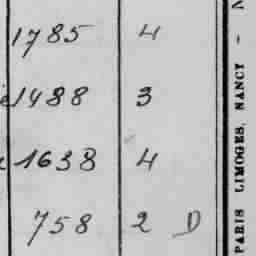 1785 4
1488 3
1638 4
758 2 D
PARIS LIMOGES, NANCY -